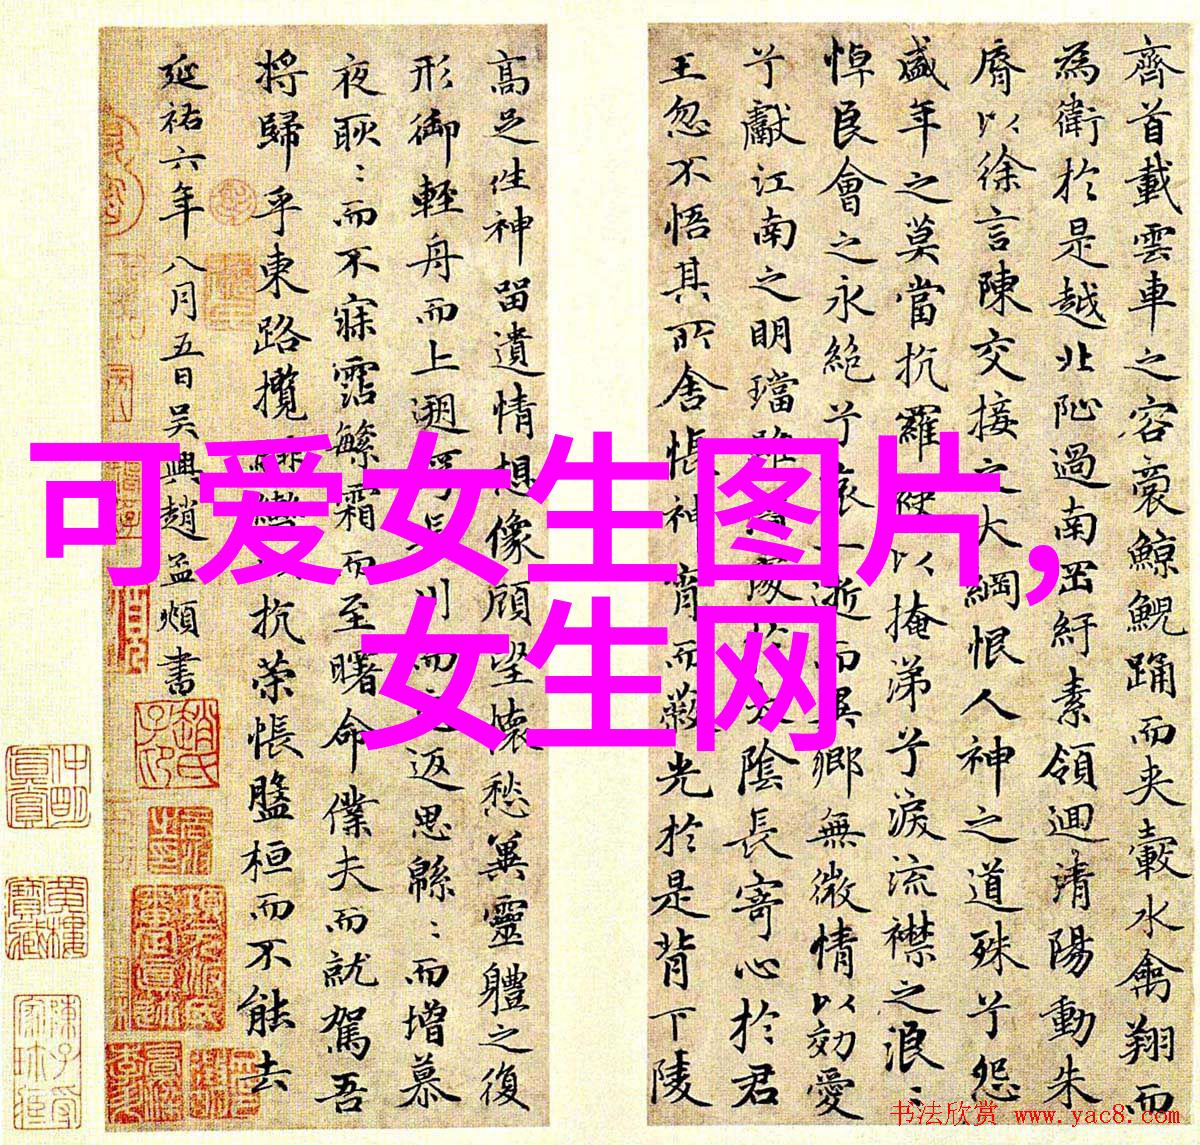 齊首載雲車之容裔鯨鯢踊而夾轂水禽翔而
為衛於是越北沚過南岡紆素領迴清陽動朱
脣以徐言陳交接之大綱恨人神之道殊兮怨
盛年之莫當抗羅袂以掩涕兮淚流襟之浪〻
悼良會之永絕兮哀一逝而異鄉無微情以効愛
兮獻江南之明璫雖
陰長寄心於君
王忽不悟其所舍悵神宵而蔽光於是背下陵
高足往神留遺情想像顧望懷愁冀靈體之復
形御輕舟而上遡
返思緜〻而增慕
夜耿〻而不寐霑繁霜而至曙命僕夫而就駕吾
將歸乎東路攬
抗
悵盤桓而不能去
延祐六年八月五日吳興趙孟頫書
可爱女生图片,
女生网
书法欣赏 www.yac8.com